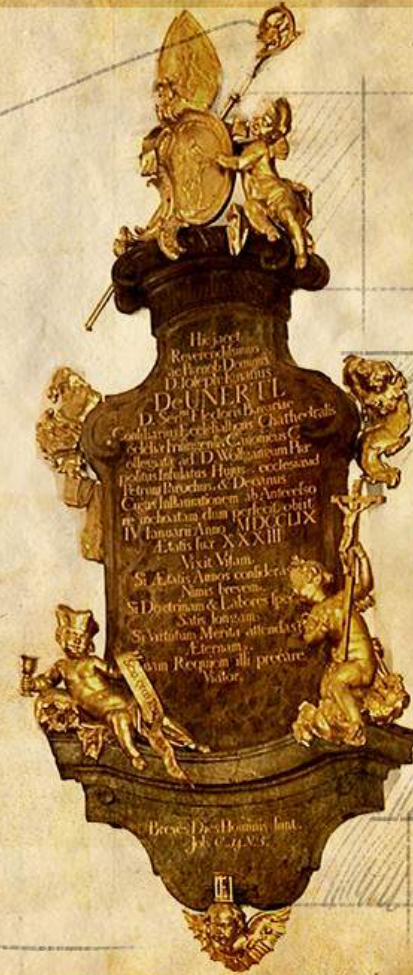 Hic jacet
Reverendissimus
ac Perill. Dominus
D. Joseph
De UNERTL
D. Seren. Electoris Bavariae
Consiliarius Ecclesiasticus Cathedralis
Ecclesiae Frisingensis Canonicus
ad D. Wolfgangum
Infulatus Hujus ecclesiae ad
Petrum Parochus & Decanus
Cujus Instaurationem ab Antecesso
re inchoatam dum perfecit obiit
IV Ianuarii Anno MDCCLIX
Ætatis suæ XXXIII
Vixit Vitam.
Si Ætatis Annos consideras
Nimis brevem.
Si Doctrinam & Labores
Satis longam.
Si Virtutum Merita attendas
Æternam.
Requiem illi precare
Viator.
Breves Dies Hominis sunt.
Job C. 14. V. 5.